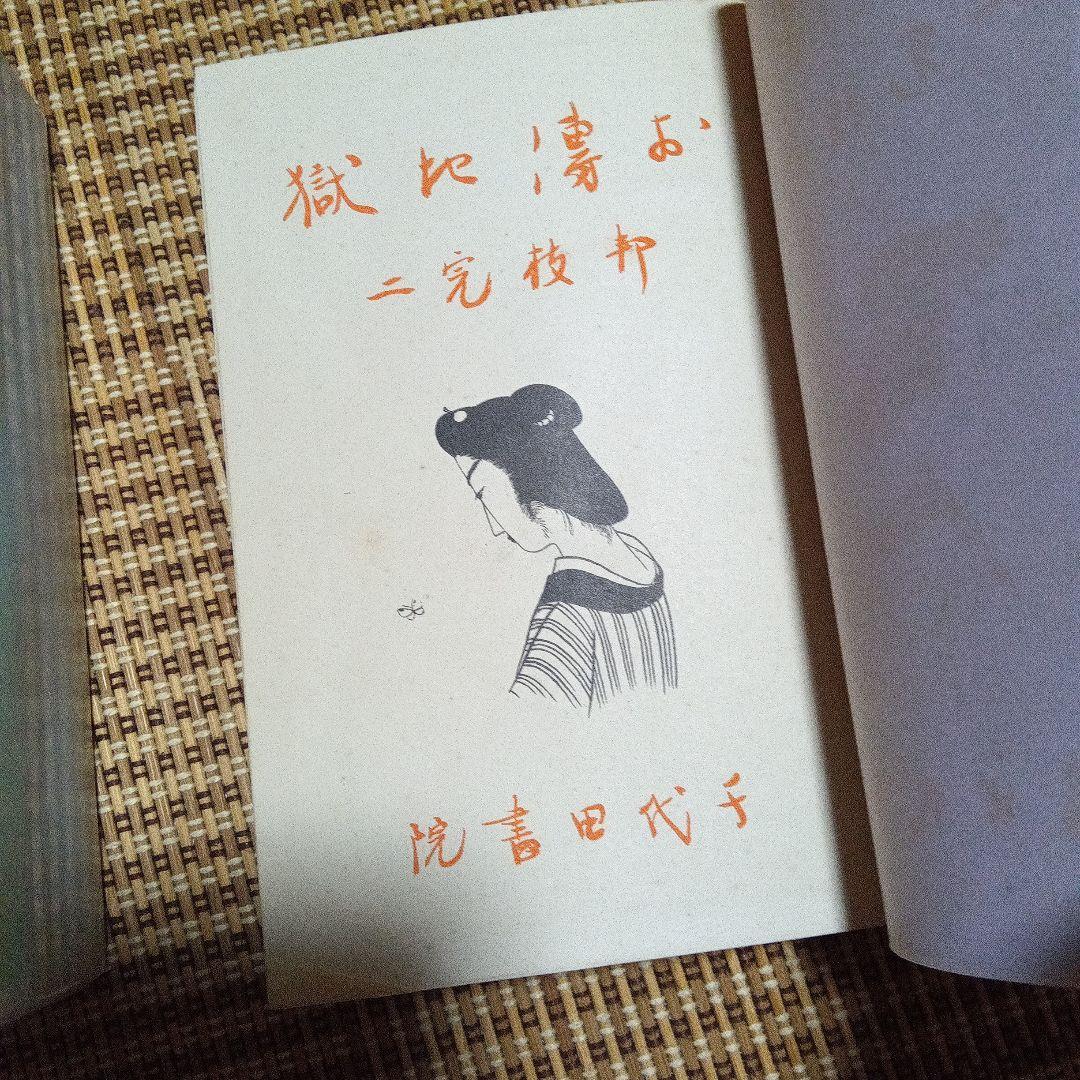 お傳地獄
邦枝完二
千代田書院